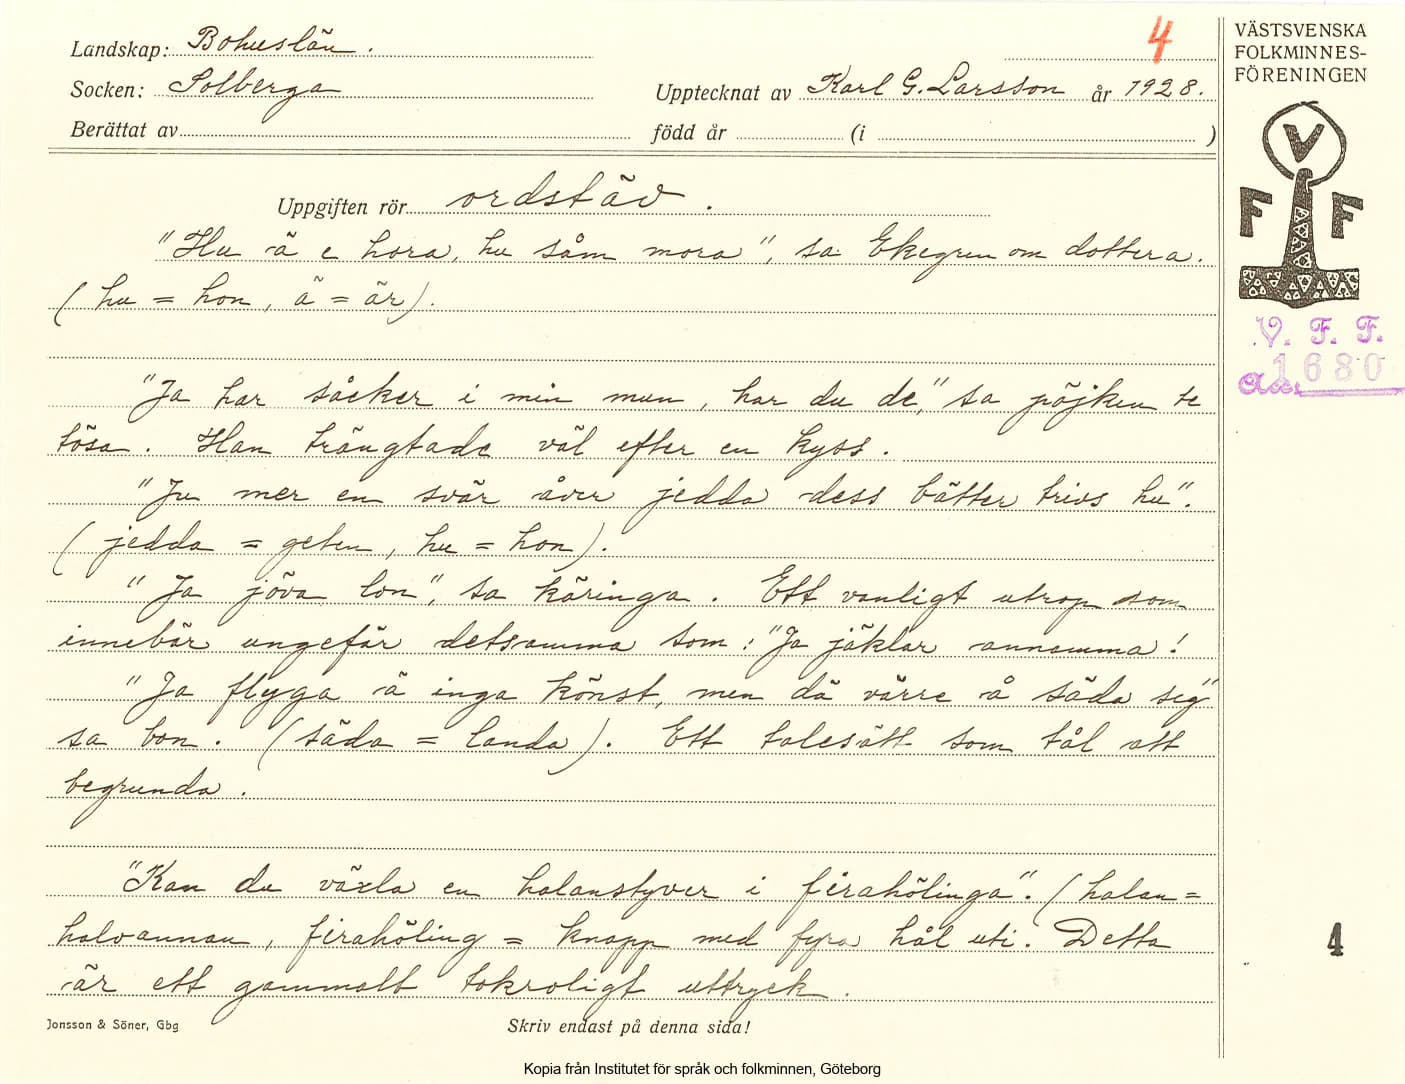 4
Landskap: Bohuslän.
Socken: Solberga
Upptecknat av Karl G. Larsson år 1928.
Berättat av
född år (i )
VÄSTSVENSKA
FOLKMINNES-
FÖRENINGEN
V
F F
V. F. F.
1680
Uppgiften rör ordstäv.
"Hu ä e hora, hu såm mora", sa Ekegren om dottera.
(hu = hon, ä = är).
"Ja har såcker i min mun, har du de," sa pöjken te
tösa. Han trängtade väl efter en kyss.
"Ju mer en svär över jedda dess bätter trivs hu".
(jedda = geten, hu = hon).
"Ja jöva lon", sa käringa. Ett vanligt utrop som
innebär ungefär detsamma som: "Ja jäklar annamma!
"Ja flyga ä inga könst, men dä värre å säda sig"
sa bon. (säda = landa). Ett talesätt som tål att
begrunda.
"Kan du växla en halanstyver i firahölinga". (halan =
halvannan, firahöling = knapp med fyra hål uti. Detta
är ett gammalt tokroligt uttryck.
4
Jonsson & Söner, Gbg
Skriv endast på denna sida!
Kopia från Institutet för språk och folkminnen, Göteborg